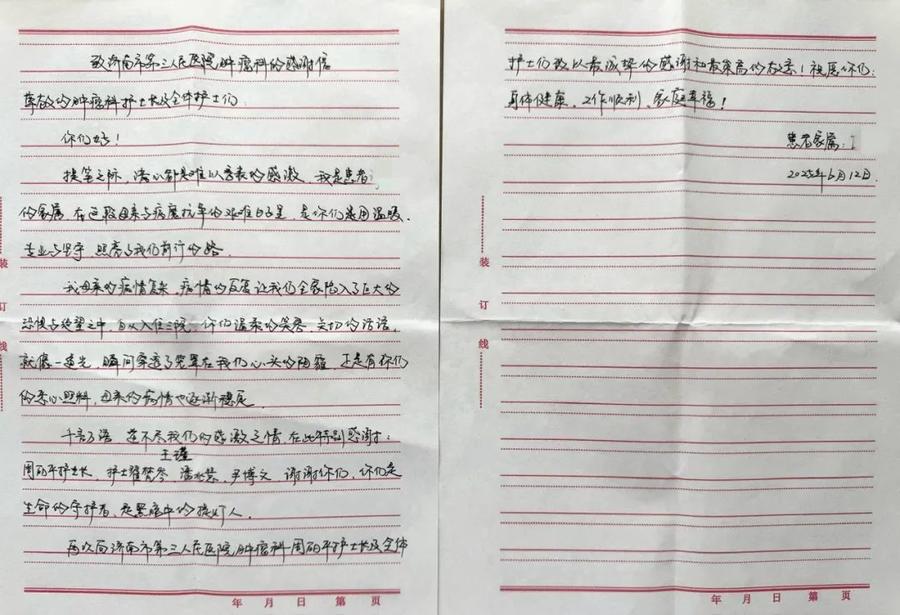 致济南市第三人民医院肿瘤科的感谢信
尊敬的肿瘤科护士长及全体护士们
你们好！
提笔之际，满心都是难以言表的感激，我是患者
的家属，在这段母亲与病魔抗争的艰难日子里，是你们用温暖、
专业与坚守，照亮了我们前行的路。
我母亲的病情复杂，病情的反复让我们全家陷入了巨大的
恐惧与绝望之中，自从入住三院，你们温柔的笑容，关切的话语，
就像一束光，瞬间穿透了笼罩在我们心头的阴霾，正是有你们
的悉心照料，母亲的病情也逐渐稳定。
千言万语 道不尽我们的感激之情，在此特别感谢：
王瑾
周丽平护士长，护士 尹博文 谢谢你们，你们是
生命的守护者，是黑暗中的提灯人。
再次向济南市第三人民医院肿瘤科周丽平护士长及全体
装
订
线
年 月 日 第 页
护士们致以最诚挚的感谢和最崇高的敬意！祝愿你们：
身体健康、工作顺利、家庭幸福！
患者家属：
2025年6月12日
装
订
线
年 月 日 第 页